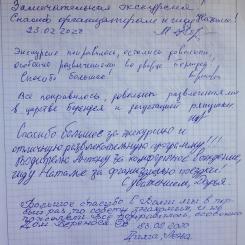 Замечательная экскурсия!
Спасибо организаторам и гиду Наталье!
23.02.2020
Экскурсия понравилась, остались довольны,
особенно развлечения во дворце
Спасибо большое!
Все понравилось, довольны развлечениями
в царстве Берендея и дегустацией
Спасибо большое за экскурсию и
отличную развлекательную программу!!!
Водителю за комфортное вождение,
гиду Наталье за организацию поездки.
С уважением, Дарья
Большое спасибо! С Вами мы в пер-
вый раз, по совету знакомых, и не
все понравилось, особенно
Дом Берендея
23.02.2020